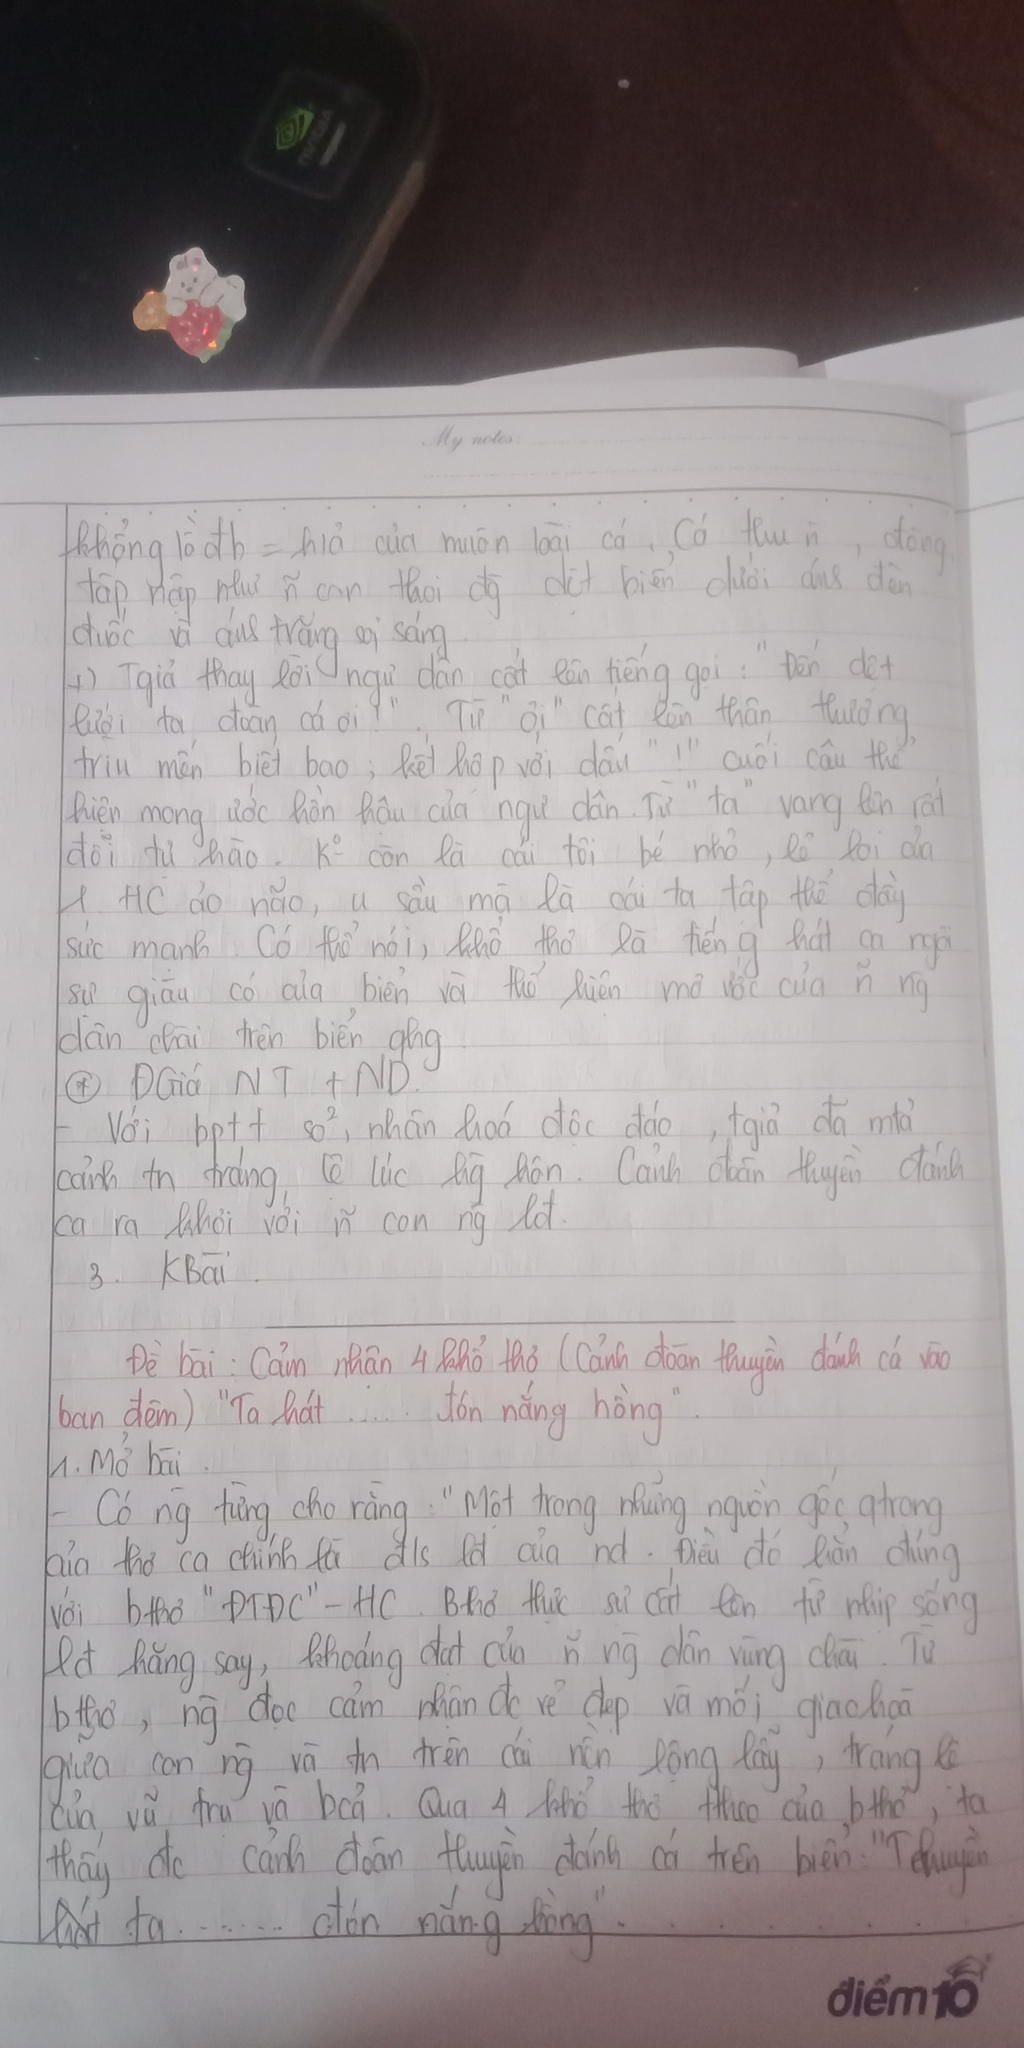 NVIDIA
My notes:
khổng lồ đb = h/ả của muôn loài cá. Cá thu ñ, đông,
tấp nập như ñ con thoi đg dệt biển dưới áns đèn
đuốc và áns trăng soi sáng.
+) Tgiả thay lời ngư dân cất lên tiếng gọi: "Đến dệt
lưới ta đoàn cá ơi!". Từ "ơi" cất lên thân thương,
trìu mến biết bao; kết hợp với dấu "!" cuối câu thể
hiện mong ước hồn hậu của ngư dân. Từ "ta" vang lên rất
đỗi tự hào. Ko còn là cái tôi bé nhỏ, lẻ loi của
1 HC ảo não, u sầu mà là cái ta tập thể đầy
sức mạnh. Có thể nói, khổ thơ là tiếng hát ca ngợi
sự giàu có của biển và thể hiện mơ ước của ñ ng
dân chài trên biển qhg.
* ĐGiá NT + ND.
- Với bptt so2, nhân hoá độc đáo, tgiả đã mtả
cảnh tn tráng lệ lúc hg hôn. Cảnh đoàn thuyền đánh
cá ra khơi với ñ con ng lđ.
3. KBài.
Đề bài: Cảm nhận 4 khổ thơ (Cảnh đoàn thuyền đánh cá vào
ban đêm) "Ta hát ..... đón nắng hồng".
1. Mở bài.
- Có ng từng cho rằng: "Một trong những nguồn gốc qtrọng
của thơ ca chính là đ/s lđ của nd. Điều đó hẳn đúng
với bthơ "ĐTĐC" - HC. Bthơ thực sự cất lên từ nhịp sống
lđ hăng say, khoáng đạt của ñ ng dân vùng chài. Từ
bthơ, ng đọc cảm nhận đc vẻ đẹp và mối giao hoà
giữa con ng và tn trên cái nền lộng lẫy, tráng lệ
của vũ trụ và bcả. Qua 4 khổ thơ ttheo của bthơ, ta
thấy đc cảnh đoàn thuyền đánh cá trên biển: "Thuyền
ta ....... đón nắng hồng".
điểm10